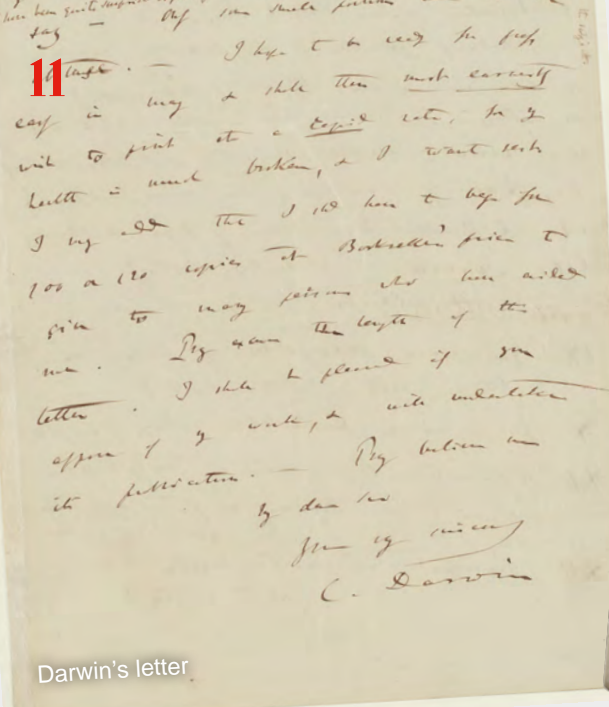 have been quite surprised
say — Of some small portions
11
attempt. — I hope to be ready for press
early in May & shall then most earnestly
wish to print at a rapid rate, for my
health is much broken, & I want rest.
I may add that I shd have to beg for
100 or 120 copies at Booksellers' price to
give to many persons who have aided
me. Pray excuse the length of this
letter. I shall be pleased if you
approve of my work, & will undertake
its publication. — Pray believe me
My dear Sir
Yours very sincerely
C. Darwin
Darwin's letter